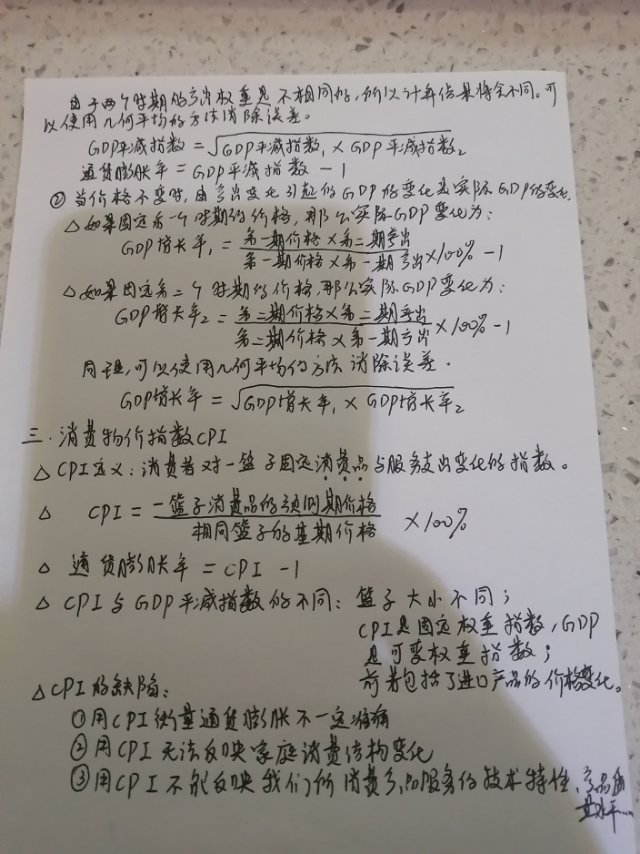 由于两个时期的产出权重是不相同的,所以计算结果将会不同。可
以使用几何平均的方法消除误差。
GDP平减指数=√GDP平减指数₁×GDP平减指数₂
通货膨胀率=GDP平减指数-1
②当价格不变时,由产出变化引起的GDP的变化是实际GDP的变化.
△如果固定看一个时期的价格,那么实际GDP变化为:
GDP增长率₁=第一期价格×第二期产出/第一期价格×第一期产出×100%-1
△如果固定看二个时期的价格,那么实际GDP变化为:
GDP增长率₂=第二期价格×第二期产出/第二期价格×第一期产出×100%-1
同理,可以使用几何平均的方法消除误差.
GDP增长率=√GDP增长率₁×GDP增长率₂
三.消费物价指数CPI
△CPI定义:消费者对一篮子固定消费品与服务支出变化的指数。
△ CPI=一篮子消费品的预测期价格/相同篮子的基期价格 ×100%
△ 通货膨胀率=CPI-1
△ CPI与GDP平减指数的不同:篮子大小不同;
CPI是固定权重指数,GDP
是可变权重指数;
前者包括了进口产品的价格变化。
△CPI的缺陷:
①用CPI衡量通货膨胀不一定准确
②用CPI无法反映家庭消费结构变化
③用CPI不能反映我们所消费产品服务的技术特性、产品质
量水平……